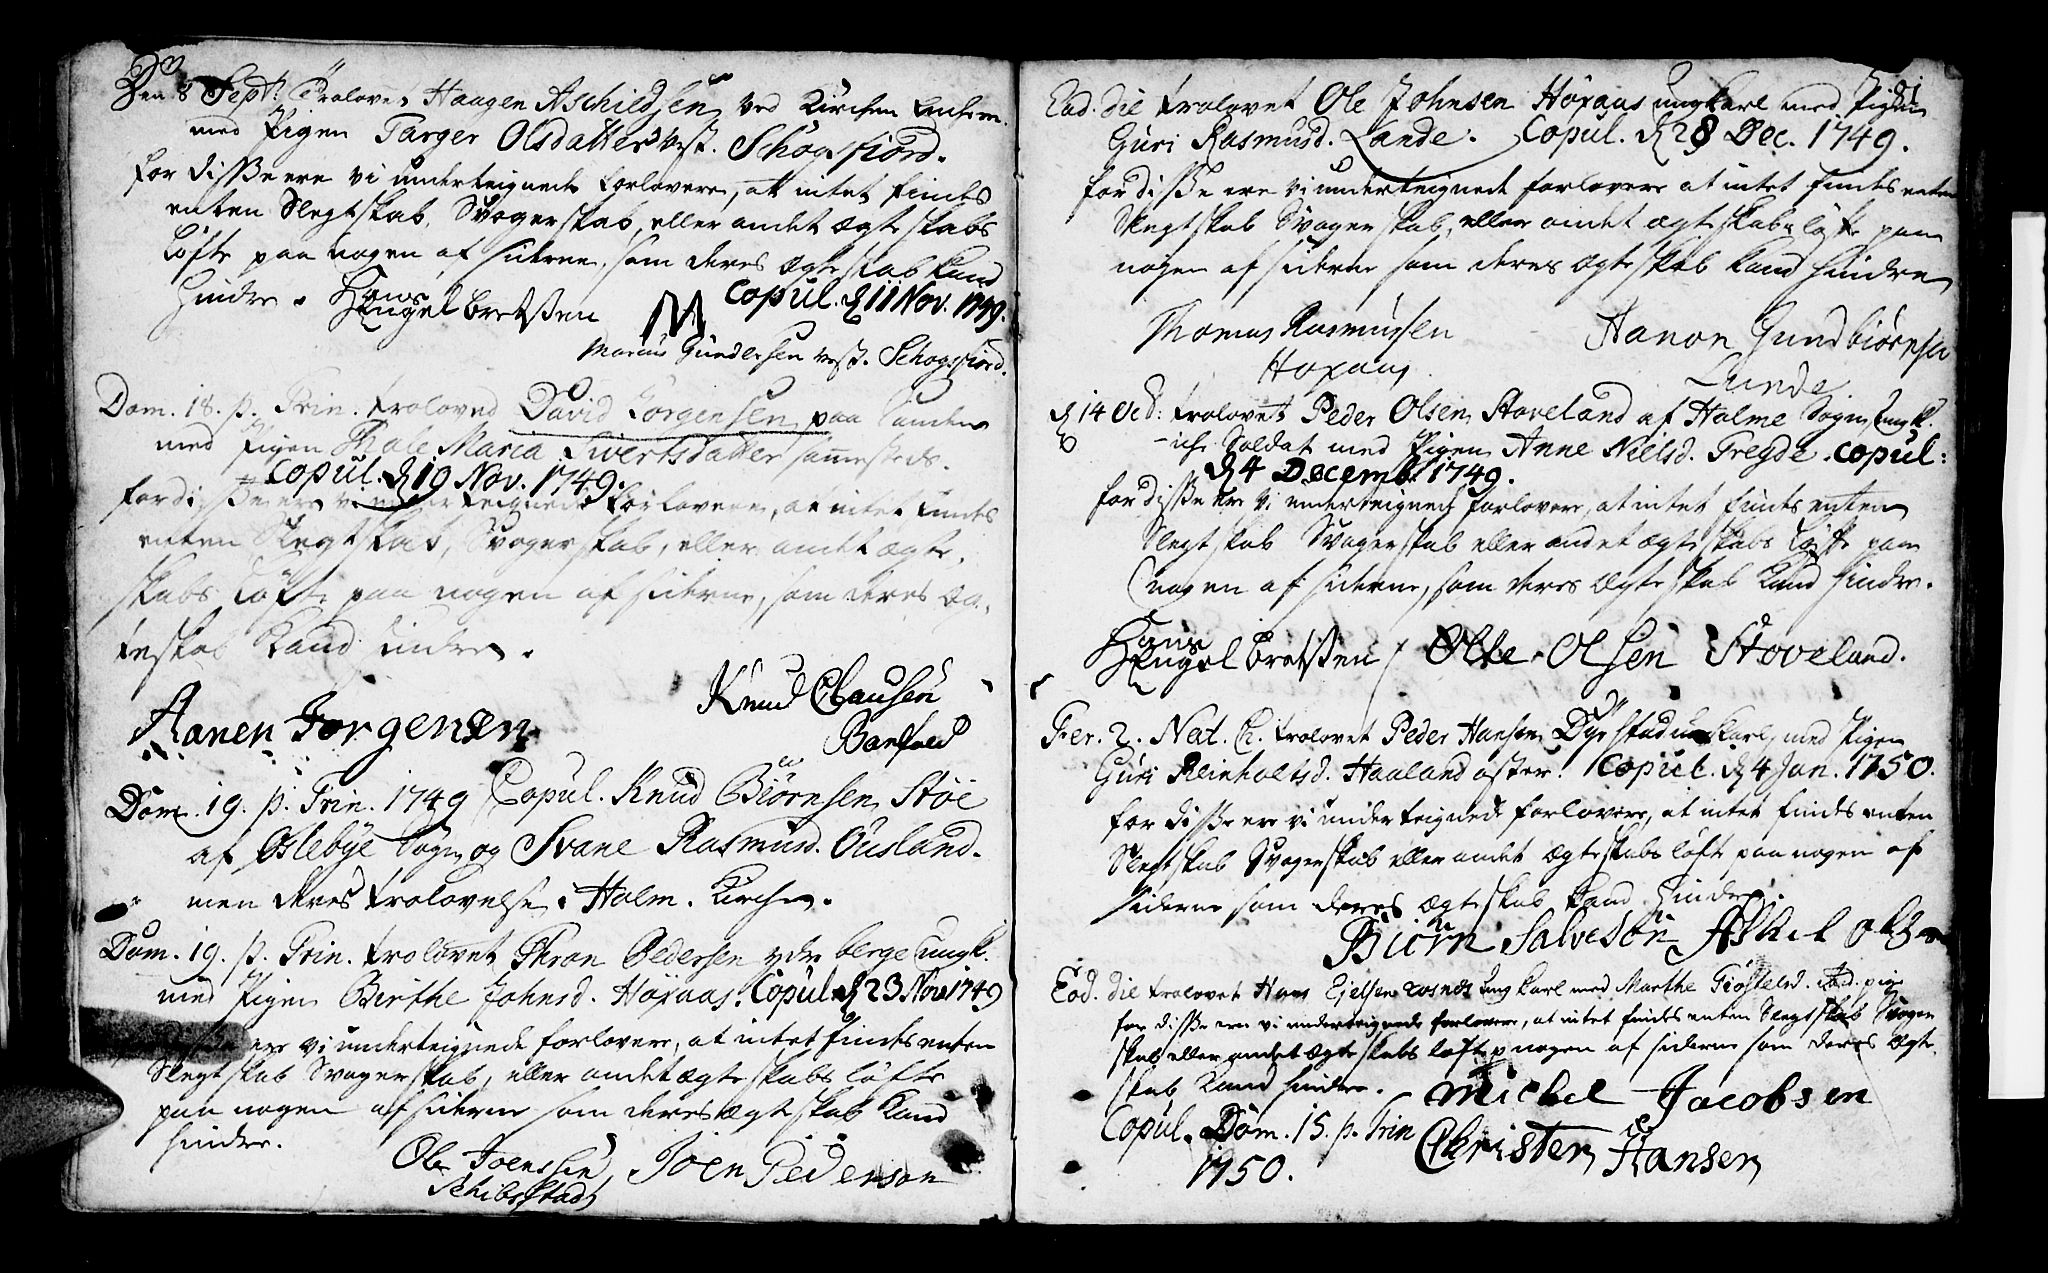 Den 8 Sept. trolovet Haagen Aschieldsen ved Kirchen
med Pigen Targer Olsdatter vest. Schogsfiord.
for disse ere vi underteignede forlovere, at intet findes
enten Slegtskab, Svogerskab, eller andet Ægteskabs
løfte paa nogen af siderne, som deres Ægteskab kand
hindre. Hans Engelbretssen M Copul. d 11 Nov. 1749.
Marcus Gundersen vest. Schogsfiord.
Dom. 18. p. Trin. troloved David Jørgensen paa
med Pigen Maria Sivertsdatter sammesteds.
Copul. d 19 Nov. 1749.
for disse ere vi underteignede forlovere, at intet findes
enten Slegtskab, Svogerskab, eller andet Ægte-
skabs løfte paa nogen af siderne, som deres Æg-
teskab kand hindre.
Knud Clausen
Aanen Jorgensen
Dom. 19. p. Trin. 1749 Copul. Knud Biørnsen Støe
af Oslebye Sogn og Svane Rasmusd. Ousland.
men deres trolovelse i Halm. Kirche.
Dom. 19. p. Trin. trolovet Thron Pedersen ydre berge ungk.
med Pigen Birthe Johnsd. Høxaas. Copul. d 23 Nov 1749
ere vi underteignede forlovere, at intet findes enten
Slegtskab Svogerskab, eller andet Ægteskabs løfte
paa nogen af siderne som deres Ægteskab kand
hindre.
Ole Joenssen Joen Pederson
Schibstad
Eod. die trolovet Ole Johnsen Høxaas ungkarl med Pigen
Guri Rasmusd. Lande. Copul. d 28 Dec. 1749.
for disse ere vi underteignede forlovere at intet findes enten
Slegtskab Svogerskab, eller andet Ægteskabs løfte paa
nogen af siderne som deres Ægteskab kand hindre
Thomas Rasmussen Aanon Gundbiørnsen
Høxaas. Lunde
d 14 Oct: trolovet Peder Olsen Stoveland af Halme Sogn Ungk.
Soldat med Pigen Anne Nielsd. Tregde. Copul:
d 4 Decemb. 1749.
for disse ere vi underteigned forlovere, at intet findes enten
Slegtskab Svogerskab eller andet Ægteskabs løfte paa
nogen af siderne, som deres Ægteskab kand hindre.
Hans Engelbretssen / Olle Olsen Stoveland.
Fer. 2. Nat. Ch. trolovet Peder Hansen Dyrstad ungkarl med Pigen
Guri Reinholtsd. Haaland øster. Copul. d 4 Jan. 1750.
for disse ere vi underteignede forlovere, at intet findes enten
Slegtskab Svogerskab eller andet Ægteskabs løfte paa nogen af
siderne som deres Ægteskab kand hindre.
Biørn Salveson Askel
Eod. die trolovet Hans Ejelsen Rosnes ungkarl med Marthe pige
for disse ere vi underteignede forlovere, at intet findes enten Slegtskab Svoger
skab eller andet Ægteskabs løfte p nogen af siderne som deres Ægte
skab kand hindre. Michel Jacobsen
Copul. Dom. 15. p. Trin Christen Hansen
1750.